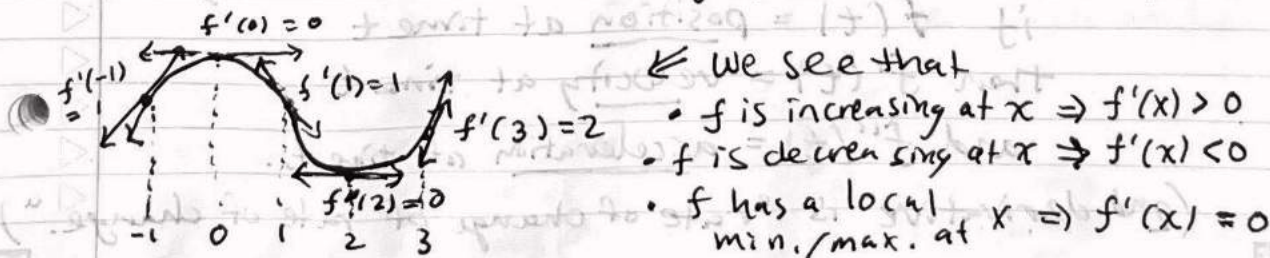 f'(0) = 0
f'(-1)
=
f'(1)=1
f'(3)=2
f'(2)=0
-1 0 1 2 3
⇐ we see that
• f is increasing at x ⇒ f'(x) > 0
• f is decreasing at x ⇒ f'(x) < 0
• f has a local
min./max. at x ⇒ f'(x) = 0